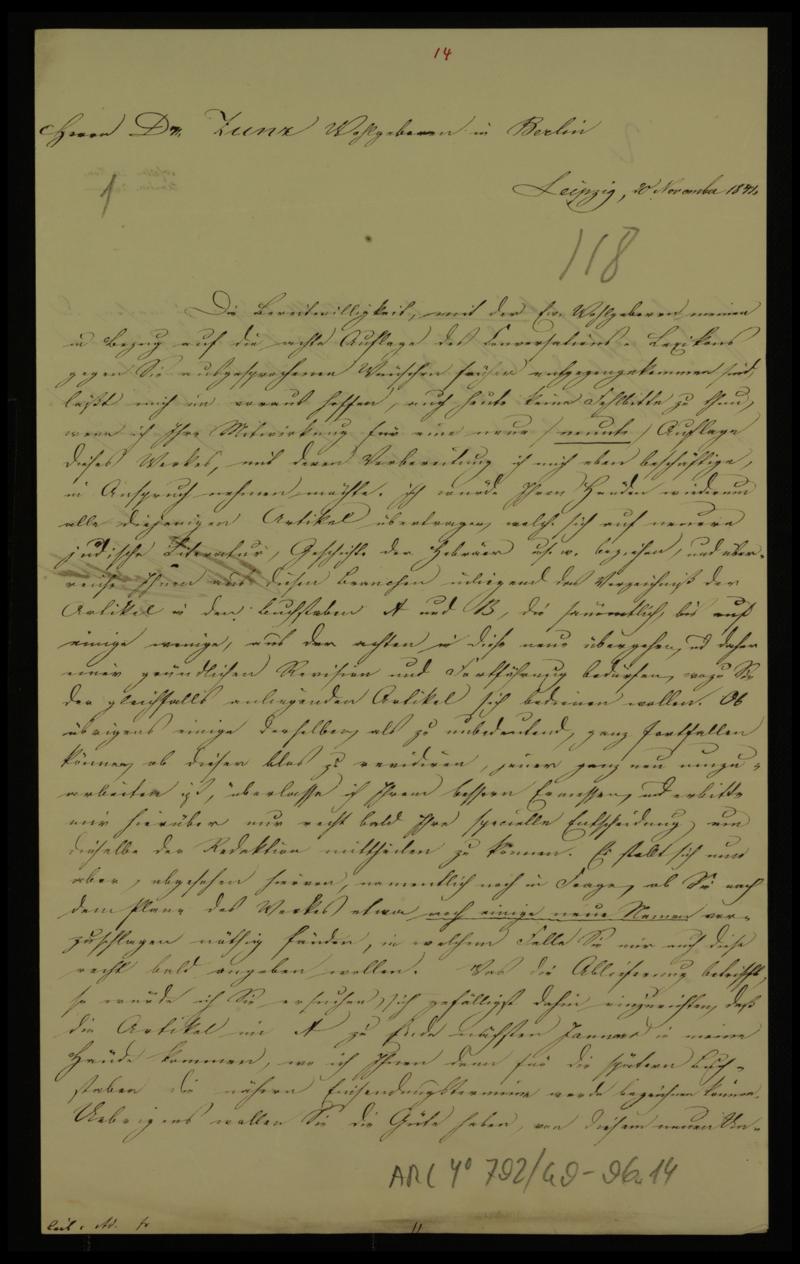 14
Herrn Dr. Zunz Wohlgeboren in Berlin
1
Leipzig, 20 November 1841.
118
Die Bereitwilligkeit, mit der Ew. Wohlgeboren meinen
in Bezug auf die achte Auflage des Conversations-Lexikons
gegen Sie ausgesprochenen Wünschen früher entgegengekommen sind,
läßt mich im voraus hoffen, auch heute keine Fehlbitte zu thun,
wenn ich Ihre Mitwirkung für eine neue (neunte) Auflage
dieses Werkes, mit deren Vorbereitung ich mich eben beschäftige,
in Anspruch nehmen möchte. Ich würde Ihren Händen wiederum
alle diejenigen Artikel übertragen, welche sich auf neuere
jüdische Literatur, Geschichte der Hebräer u.s.w. beziehen, und über-
reiche Ihnen aus diesen Branchen inliegend das Verzeichniß der
Artikel in den Buchstaben A und B, die sämmtlich, bis auf
einige wenige, aus der achten in diese neue übergehen, und daher
einer gründlichen Revision und Fortführung bedürfen, wozu Sie
der gleichfalls anliegenden Artikel sich bedienen wollen. Ob
übrigens einige derselben, als zu unbedeutend, ganz fortfallen
können, ob dieser blos zu revidiren, jener ganz neu umzu-
arbeiten ist, überlasse ich Ihrem bessern Ermessen, und erbitte
mir hierüber nur recht bald Ihre specielle Entscheidung, um
dieselbe der Redaktion mittheilen zu können. Es stellt sich nun
aber, abgesehen hiervon, namentlich noch die Frage, ob Sie nach
dem Plane des Werkes etwa noch einige neue Namen vor-
zuschlagen nöthig fänden, in welchem Falle Sie mir auch diese
recht bald angeben wollen. Was die Ablieferung betrifft,
so würde ich Sie ersuchen, sich gefälligst dahin einzurichten, daß
die Artikel im A zu Ende nächsten Januar in meine
Hände kommen, wo ich Ihnen dann für die spätern Buch-
staben die nähern Einsendungstermine werde bezeichnen können.
Uebrigens wollen Sie die Güte haben, von diesem neuen Un-
ARC 4° 792/
14